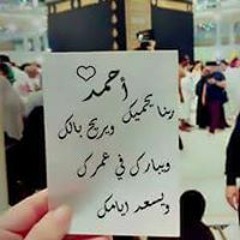 أحمد
ربنا يحميك
ويريح بالك
ويبارك في عمرك
ويسعد ايامك